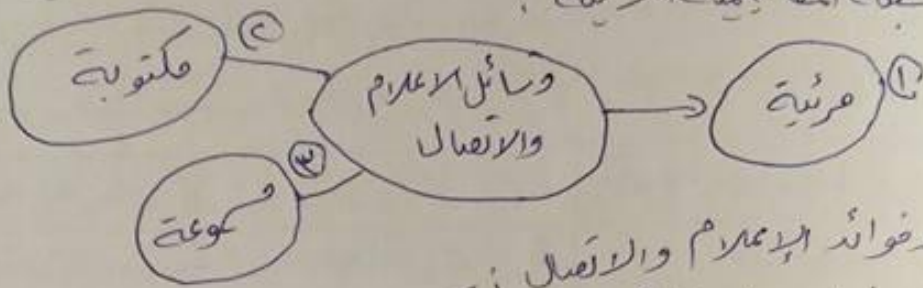 وسائل الاعلام
والاتصال
① مرئية
② مكتوبة
③ مسموعة
فوائد الإعلام والاتصال :